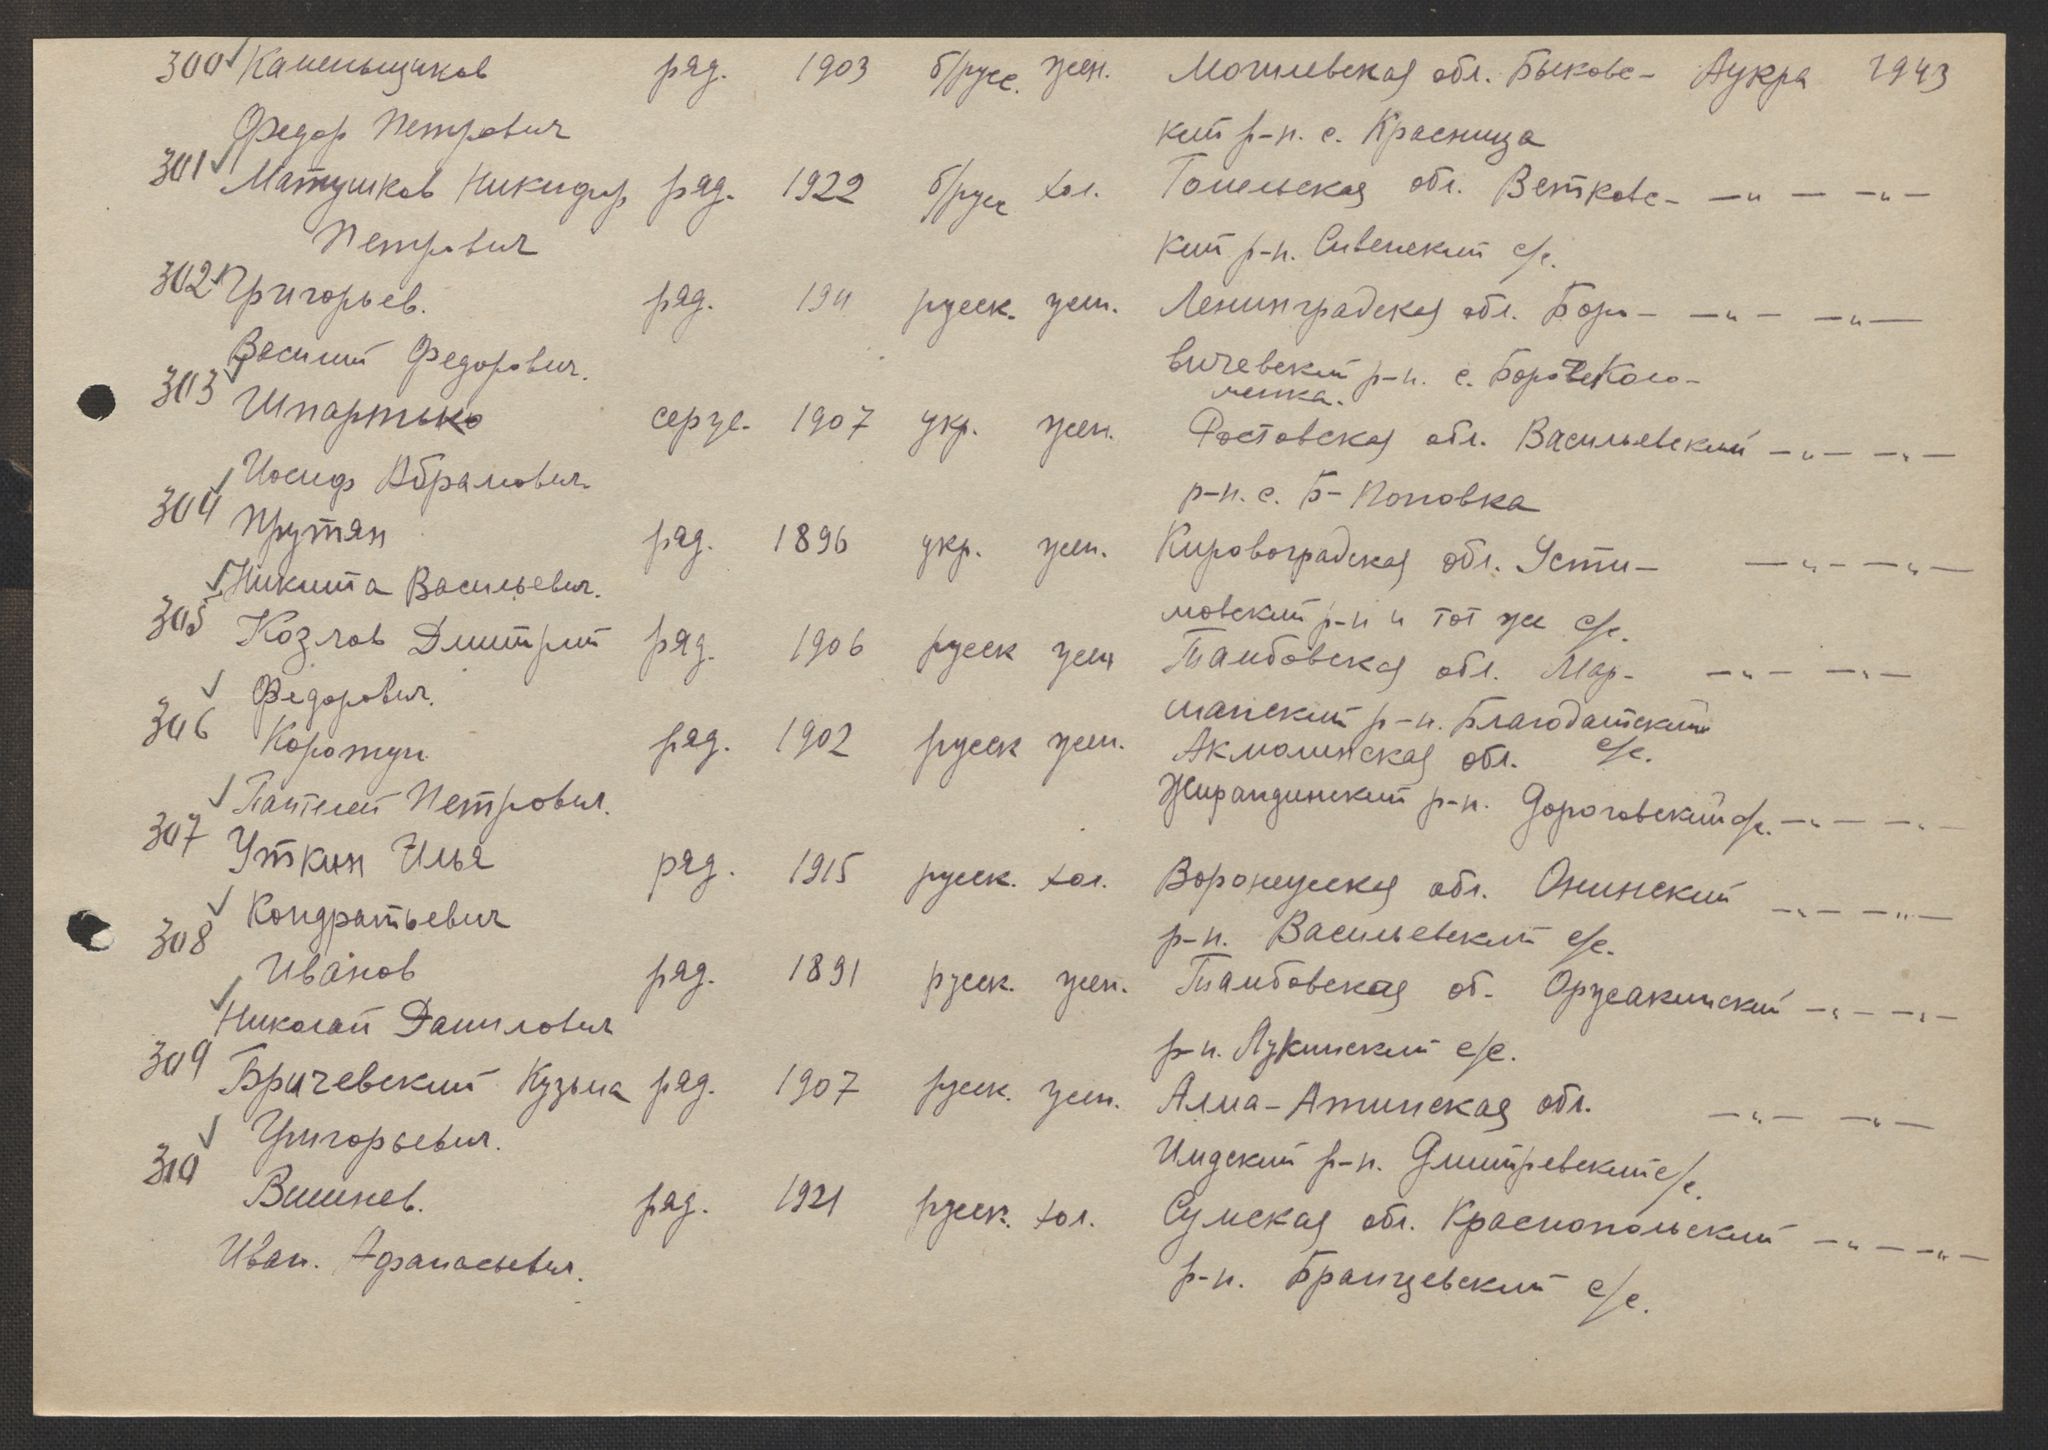 300 Каменьщиков ряд. 1903 б/русс. жен. Могилевская обл. Быховс- Аукра 1943
Федор Петрович кий р-н. с. Красница
301 Матушков Никифор ряд. 1922 б/русс хол. Гомельская обл. Ветковс- —"— —"—
Петрович кий р-н. Сивенский с/с.
302 Григорьев. ряд. 1911 русск. жен. Ленинградская обл. Боро- —"— —"—
Василий Федорович. вичевский р-н. с.
303 Шпартько серж. 1907 укр. жен. Ростовская обл. Васильевский —"— —"—
Иосиф Абрамович. р-н. с. Б-Поповка
304 Прутян ряд. 1896 укр. жен. Кировоградская обл. Усти- —"— —"—
Никита Васильевич. мовский р-н и тот же с/с.
305 Козлов Дмитрий ряд. 1906 русск жен Тамбовская обл. Мар- —"— —"—
Федорович. шанский р-н. Благодатский с/с.
306 Коротун ряд. 1902 русск жен. Акмолинская обл.
Пантелей Петрович. Жирандинский р-н. Дороговский с/с. —"— —"—
307 Уткин Илья ряд. 1915 русск. хол. Воронежская обл. Онинский —"— —"—
Кондратьевич р-н. Васильевский с/с.
308 Иванов ряд. 1891 русск. жен. Тамбовская об. —"— —"—
Николай Данилович р-н. Лукинский с/с.
309 Бричевский Кузьма ряд. 1907 русск. жен. Алма-Атинская обл. —"— —"—
Григорьевич. р-н. Дмитревский с/с.
310 Вишнев. ряд. 1921 русск. хол. Сумская обл. Краснопольский —"— —"—
Иван. Афанасьевич. р-н. Бранцевский с/с.